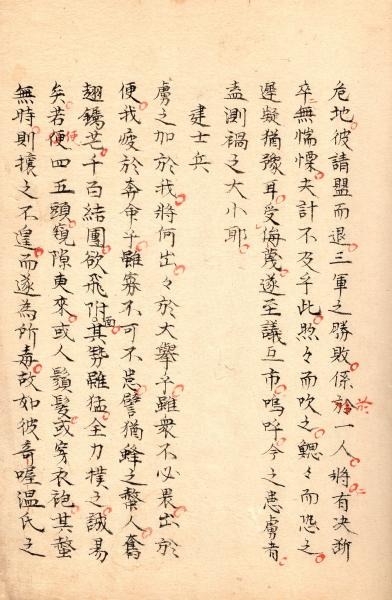 危地彼請盟而退三軍之勝敗係於一人將有決斷
於
卒無惴慄夫計不及乎此煦々而吹之鰓々而恐之
遲疑猶豫耳受侮蔑遂至議互市嗚呼今之患虜者
盍測禍之大小耶
建士兵
虜之加於我將何出々於大擧乎雖衆不必畏出於
便我疲於奔命乎雖寡不可不患譬猶蜂之螫人奮
翅鑴芒千百結團欲飛附面其勢雖猛全力撲之誠易
矣若便四五頭窺隙更來或人鬚髮或穿衣袍其螫
使
無時則攘之不遑而遂為所毒故如彼奇喔温氏之